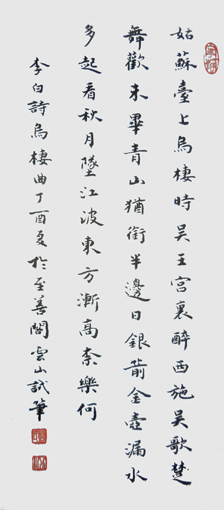 姑蘇臺上烏棲時吳王宮裏醉西施吳歌楚
舞歡未畢青山猶銜半邊日銀箭金壺漏水
多起看秋月墜江波東方漸高柰樂何
李白詩烏棲曲丁酉夏於至善閣雲山試筆